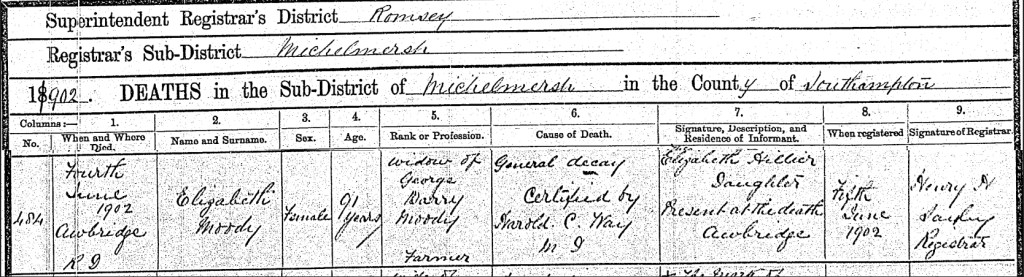 Superintendent Registrar's District Romsey
Registrar's Sub-District Michelmersh
1902. DEATHS in the Sub-District of Michelmersh in the County of Southampton
Columns:— 1. 2. 3. 4. 5. 6. 7. 8. 9.
No. When and Where Died. Name and Surname. Sex. Age. Rank or Profession. Cause of Death. Signature, Description, and Residence of Informant. When registered Signature of Registrar.
484
Fourth
June
1902
Awbridge
R D
Elizabeth
Moody
Female
91
years
Widow of
George
Barry
Moody
Farmer
General decay
Certified by
Harold. C. Way
M D
Elizabeth Hillier
Daughter
Present at the death
Awbridge
Fifth
June
1902
Henry H
Registrar